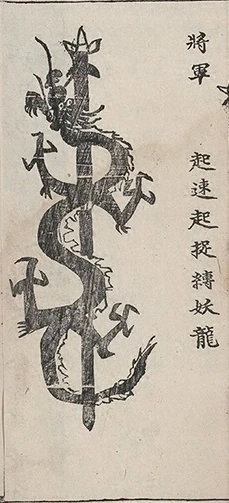 將軍　起速起捉縛妖龍